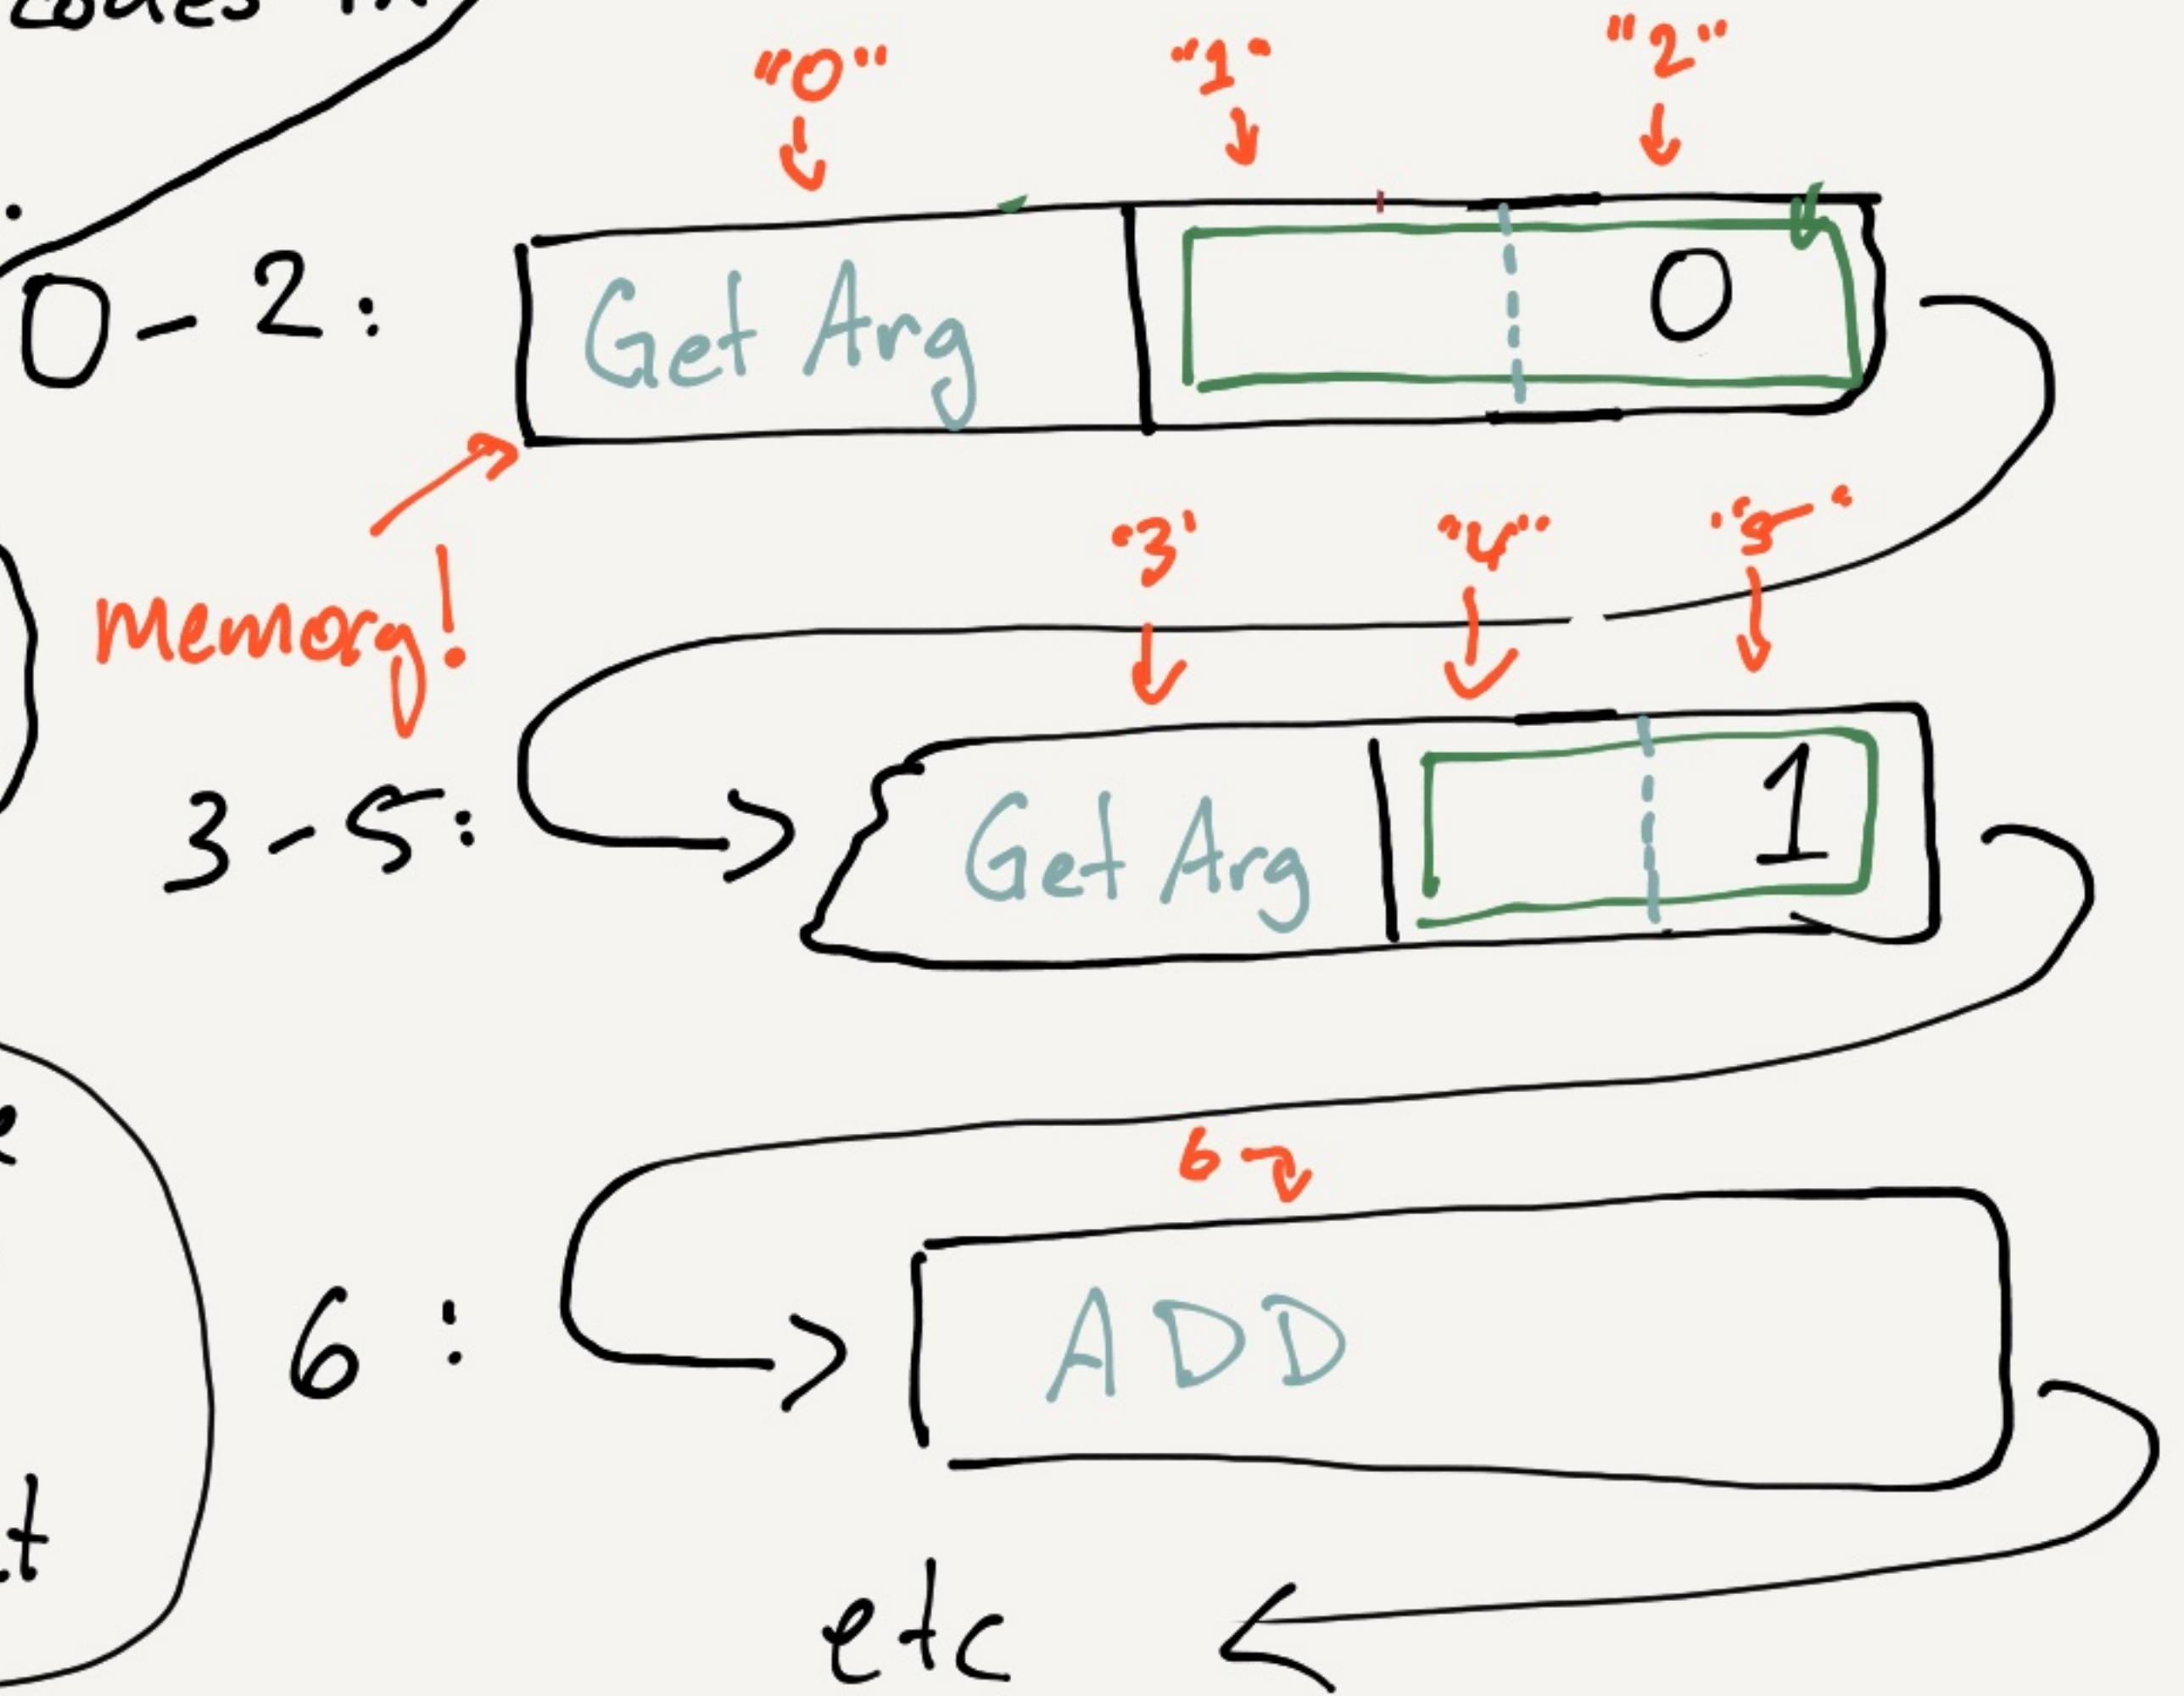 codes
"0" "1" "2"
0-2: Get Arg 0
memory!
"3" "4" "5"
3-5: Get Arg 1
6
6: ADD
etc